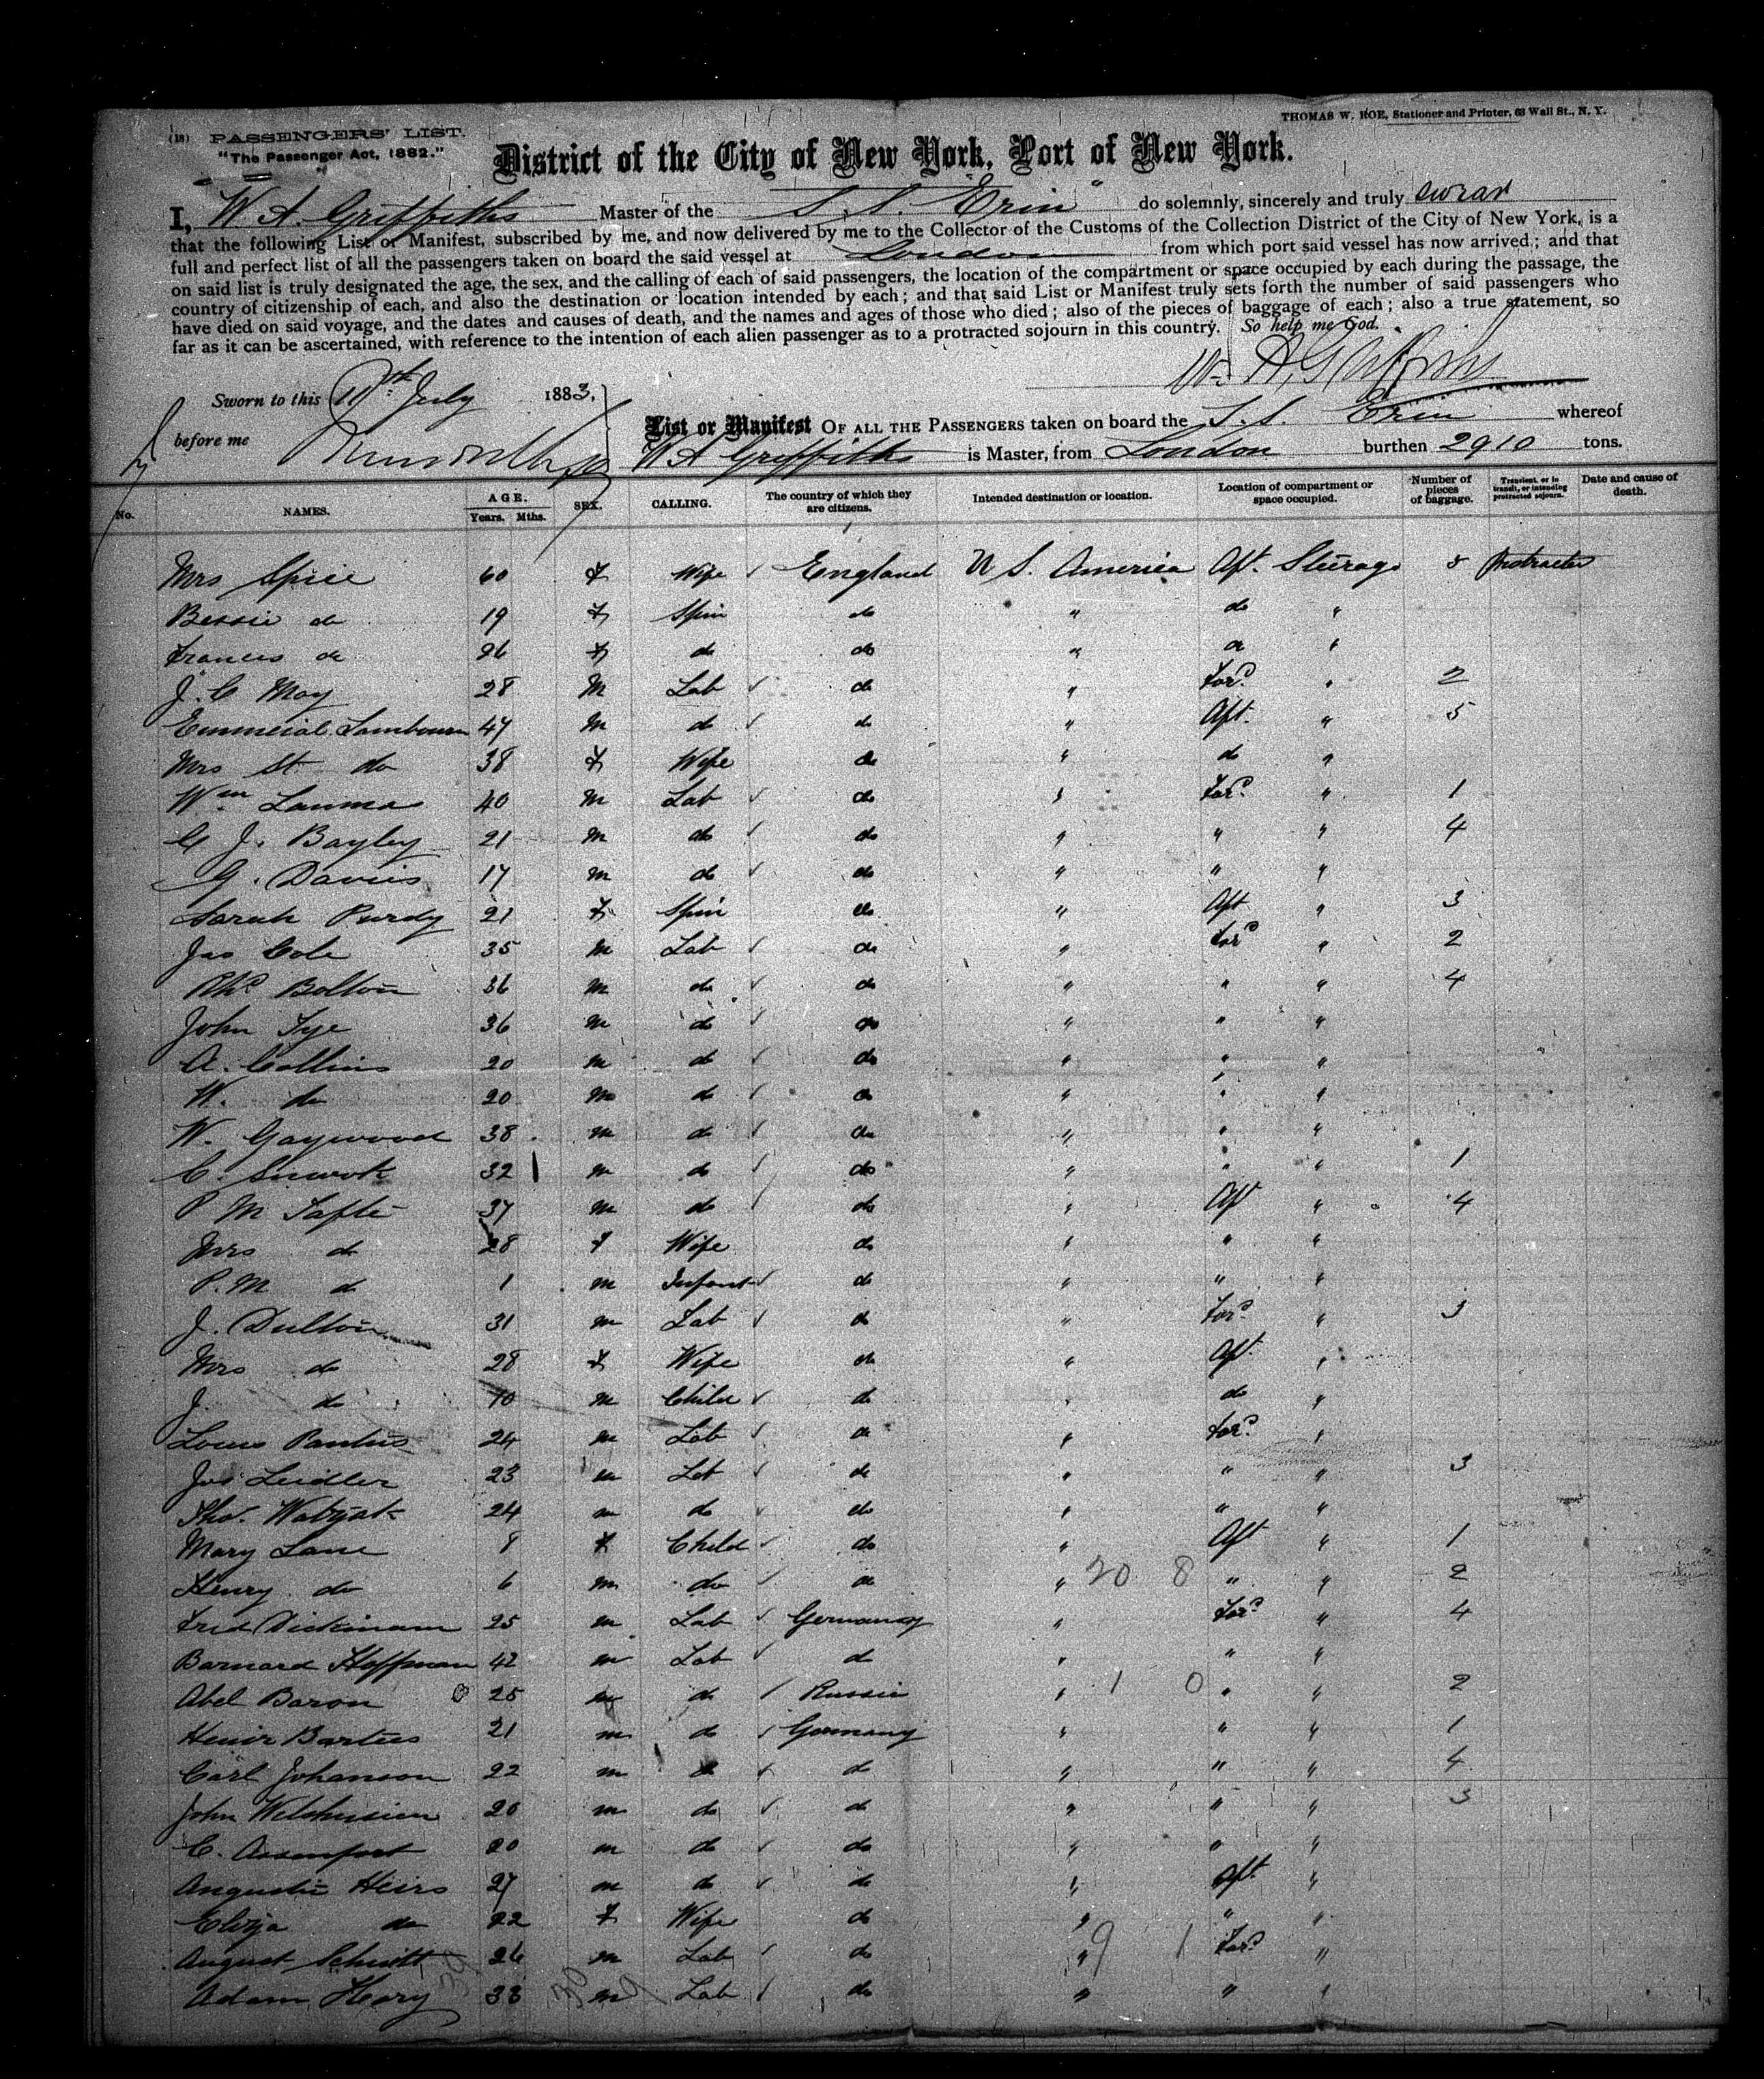 THOMAS W. ROE, Stationer and Printer, 63 Wall St., N. Y.
(18) PASSENGERS' LIST.
"The Passenger Act, 1882."
District of the City of New York, Port of New York.
I, W. A. Griffiths Master of the S. S. "Erin" do solemnly, sincerely and truly swear
that the following List or Manifest, subscribed by me, and now delivered by me to the Collector of the Customs of the Collection District of the City of New York, is a
full and perfect list of all the passengers taken on board the said vessel at London from which port said vessel has now arrived; and that
on said list is truly designated the age, the sex, and the calling of each of said passengers, the location of the compartment or space occupied by each during the passage, the
country of citizenship of each, and also the destination or location intended by each; and that said List or Manifest truly sets forth the number of said passengers who
have died on said voyage, and the dates and causes of death, and the names and ages of those who died; also of the pieces of baggage of each; also a true statement, so
far as it can be ascertained, with reference to the intention of each alien passenger as to a protracted sojourn in this country. So help me God.
Wm A. Griffiths
Sworn to this 11th July 1883,
before me
List or Manifest OF ALL THE PASSENGERS taken on board the S. S. Erin whereof
W A Griffiths is Master, from London burthen 2910 tons.
No. NAMES. AGE. Years. Mths. SEX. CALLING. The country of which they are citizens. Intended destination or location. Location of compartment or space occupied. Number of pieces of baggage. Transient, or in transit, or intending protracted sojourn. Date and cause of death.
Mrs Spice 60 f Wife England U S. America Aft. Sturage 5 Protracted
Bessie do 19 f Spin do " do "
Frances do 26 f do do " do "
J. C May 28 M Lab do " Ford " 2
Lambourn 47 M do do " Aft. " 5
Mrs St do 38 f Wife do " do "
Wm Lanma 40 M Lab do " Ford " 1
C J. Bayley 21 m do do " " " 4
G. Davies 17 m do do " " "
Sarah Purdy 21 f Spin do " Aft " 3
Jas Cole 35 m Lab do " Ford " 2
Rhd Bolton 36 m do do " " " 4
John Tye 36 m do do " " "
A. Collins 20 m do do " " "
W. do 20 m do do " " "
W. Gaywood 38 m do do " " "
C. 32 m do do " " " 1
P M Tafte 37 m do do " Aft " 4
Mrs do 28 f Wife do " " "
P. M do 1 m Infant do " " "
J. Dulton 31 m Lab do " Ford " 3
Mrs do 28 f Wife do " Aft "
J. do 10 m Child do " do "
Louis 24 m Lab do " Ford "
Jos Leidler 23 m Lab do " " " 3
Tho. 24 m do do " " "
Mary Lane 8 f Child do " Aft " 1
Henry do 6 m do do " 20 8 " " 2
Fred Dickinson 25 m Lab Germany " Ford " 4
Barnard Hoffman 42 m Lab do " " "
Abel Baron 25 m do Russia " 1 0 " " 2
Henir Bartels 21 m do Germany " " " 1
Carl Johanson 22 m do do " " " 4
John 20 m do do " " " 3
C. 20 m do do " " "
Augustie Heirs 27 m do do " Aft "
Eliza do 22 f Wife do " " "
August Schmitt 26 m Lab do " 9 1 Ford "
Adam Heary 33 m Lab do " " "